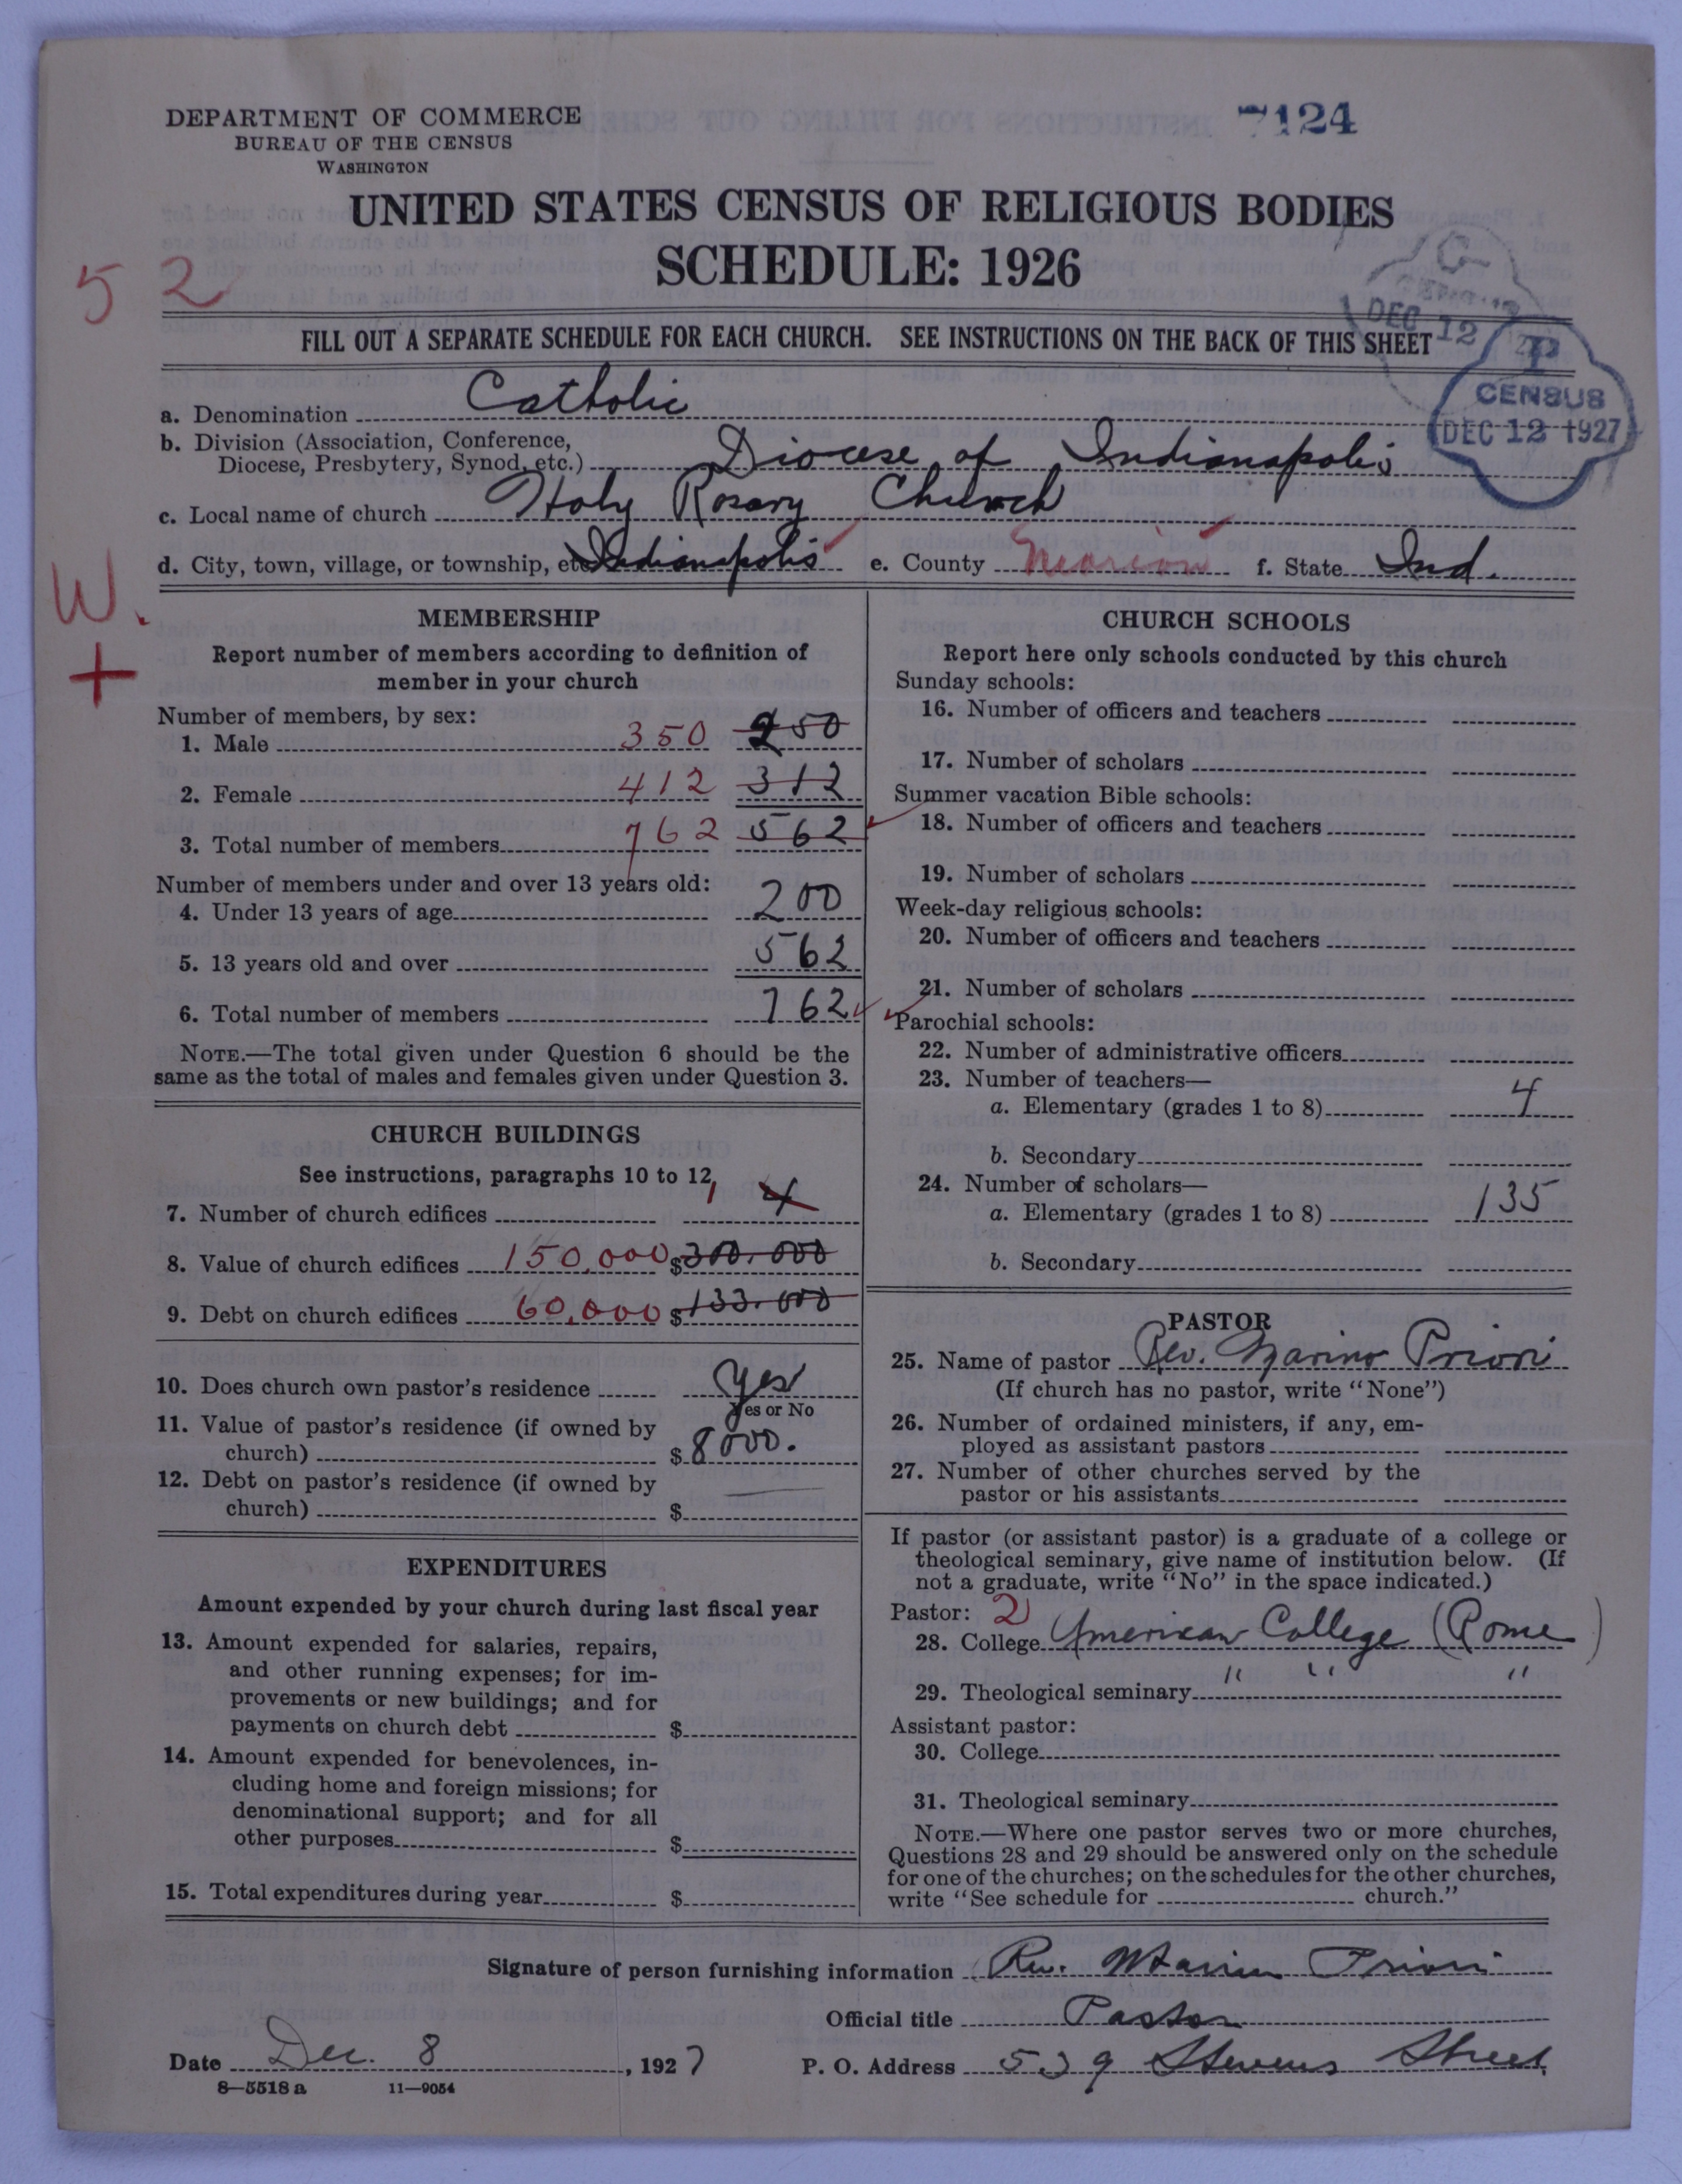 DEPARTMENT OF COMMERCE
BUREAU OF THE CENSUS
WASHINGTON
7124
UNITED STATES CENSUS OF RELIGIOUS BODIES
SCHEDULE: 1926
52
DEC 12
FILL OUT A SEPARATE SCHEDULE FOR EACH CHURCH. SEE INSTRUCTIONS ON THE BACK OF THIS SHEET
CENSUS
DEC 12 1927
a. Denomination Catholic
b. Division (Association, Conference,
Diocese, Presbytery, Synod, etc.) Diocese of Indianapolis
c. Local name of church Holy Rosary Church
d. City, town, village, or township, etc Indianapolis e. County Marion f. State Ind.
W.
+
MEMBERSHIP
Report number of members according to definition of
member in your church
Number of members, by sex:
1. Male 350 250
2. Female 412 312
3. Total number of members 762 562
Number of members under and over 13 years old:
4. Under 13 years of age 200
5. 13 years old and over 562
6. Total number of members 762
NOTE.—The total given under Question 6 should be the
same as the total of males and females given under Question 3.
CHURCH BUILDINGS
See instructions, paragraphs 10 to 12
7. Number of church edifices 1 4
8. Value of church edifices 150,000 $300.000
9. Debt on church edifices 60,000 $133.000
10. Does church own pastor's residence Yes
Yes or No
11. Value of pastor's residence (if owned by
church) $8000.
12. Debt on pastor's residence (if owned by
church) $
EXPENDITURES
Amount expended by your church during last fiscal year
13. Amount expended for salaries, repairs,
and other running expenses; for im-
provements or new buildings; and for
payments on church debt $
14. Amount expended for benevolences, in-
cluding home and foreign missions; for
denominational support; and for all
other purposes $
15. Total expenditures during year $
CHURCH SCHOOLS
Report here only schools conducted by this church
Sunday schools:
16. Number of officers and teachers
17. Number of scholars
Summer vacation Bible schools:
18. Number of officers and teachers
19. Number of scholars
Week-day religious schools:
20. Number of officers and teachers
21. Number of scholars
Parochial schools:
22. Number of administrative officers
23. Number of teachers—
a. Elementary (grades 1 to 8) 4
b. Secondary
24. Number of scholars—
a. Elementary (grades 1 to 8) 135
b. Secondary
PASTOR
25. Name of pastor Rev. Marino Priori
(If church has no pastor, write "None")
26. Number of ordained ministers, if any, em-
ployed as assistant pastors
27. Number of other churches served by the
pastor or his assistants
If pastor (or assistant pastor) is a graduate of a college or
theological seminary, give name of institution below. (If
not a graduate, write "No" in the space indicated.)
Pastor: 2
28. College American College (Rome)
29. Theological seminary " " "
Assistant pastor:
30. College
31. Theological seminary
NOTE.—Where one pastor serves two or more churches,
Questions 28 and 29 should be answered only on the schedule
for one of the churches; on the schedules for the other churches,
write "See schedule for church."
Signature of person furnishing information Rev. Marino Priori
Official title Pastor
Date Dec. 8, 1927 P. O. Address 539 Stevens Street
8—5518 a 11—9054